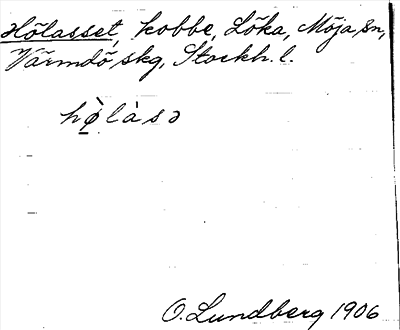 Hölasset, kobbe, Löka, Möja sn,
Värmdö skg, Stockh. l.
hø̀làsə
O. Lundberg 1906